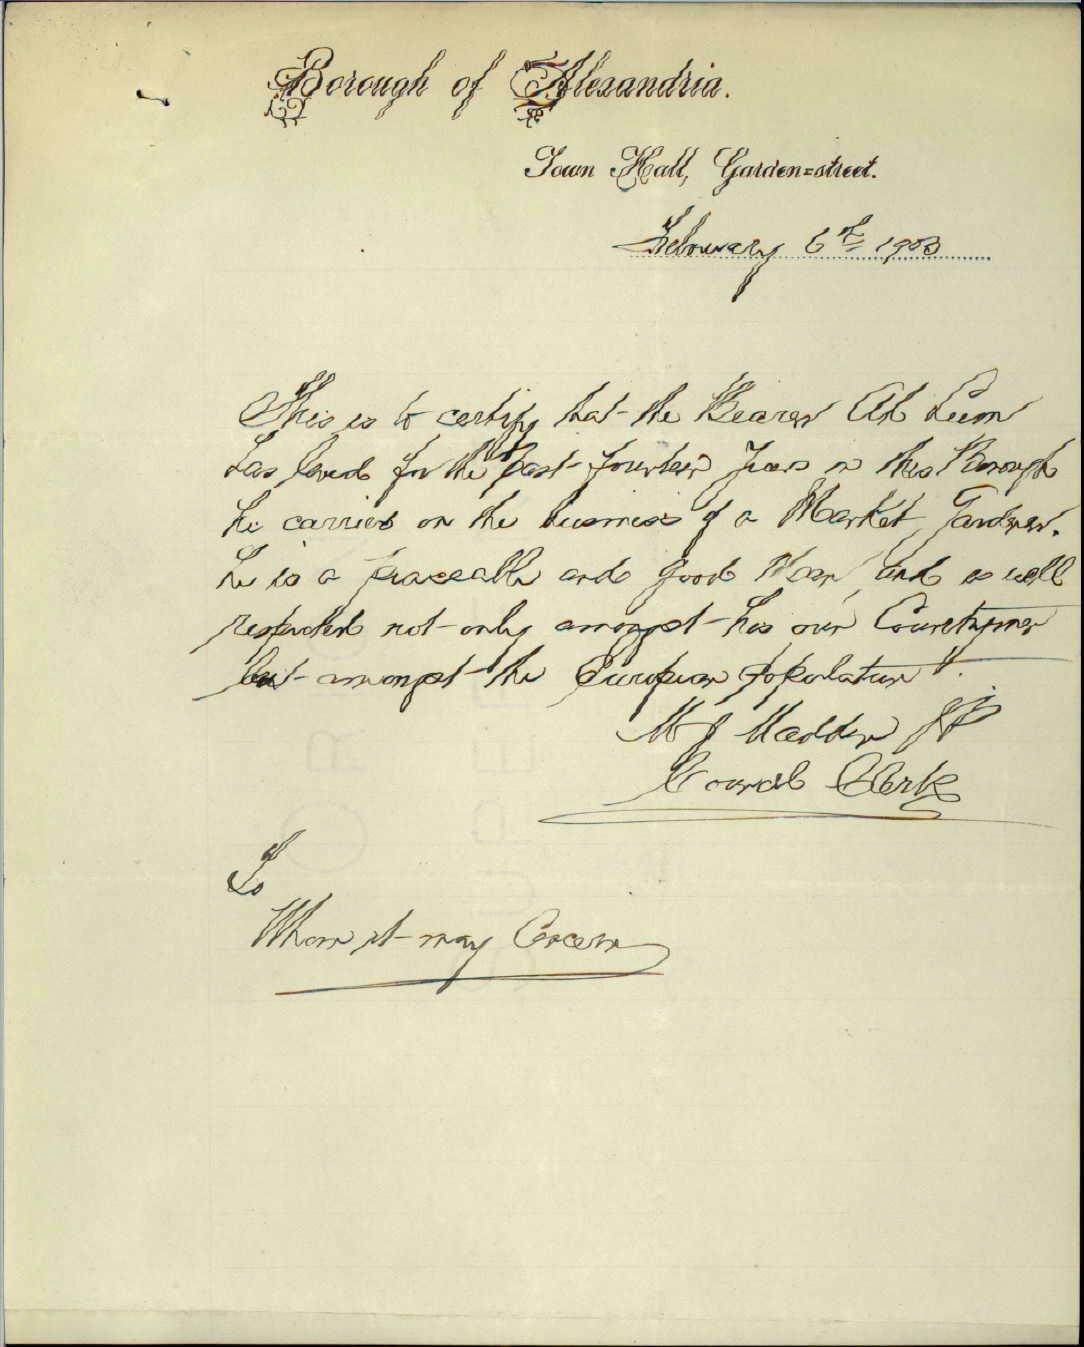 Borough of Alexandria.
Town Hall, Garden=street.
February 6th 1903
This is to certify that the Bearer Ah Leem
has lived for the past fourteen years in this Borough
he carries on the business of a Market Gardener.
he is a peaceable and good Man, and is well
respected not only amongst his own Countrymen
but amongst the European population".
M J Madden JP
Council Clerk
To
Whom it may Concern